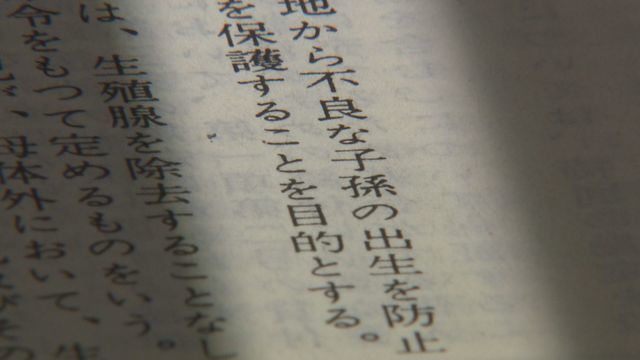 地から不良な子孫の出生を防止
を保護することを目的とする。
は、生殖腺を除去することなし
令をもつて定めるものをいう。
が、母体外において、生